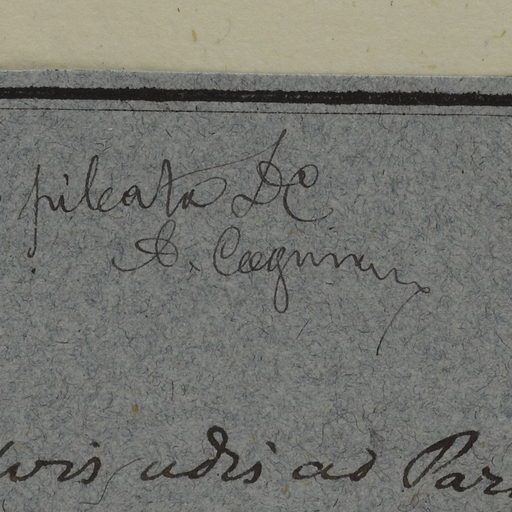 pileata DC
A. Cogniaux
lvis udis ad Par